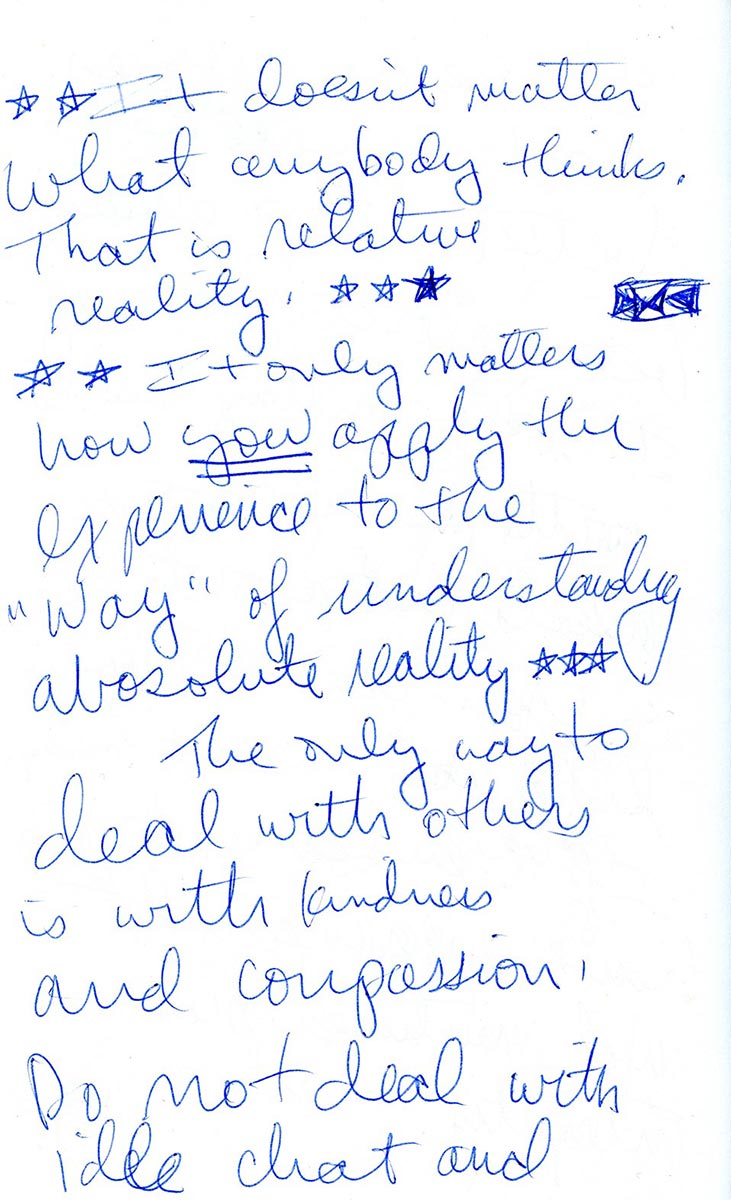 ☆ ☆ It doesn't matter
what anybody thinks.
That is relative
reality. ☆ ☆ ★
☆ ★ It only matters
how you apply the
experience to the
"Way" of understanding
abosolute reality ★★★
The only way to
deal with others
is with kindness
and conpassion.
Do not deal with
idle chat and